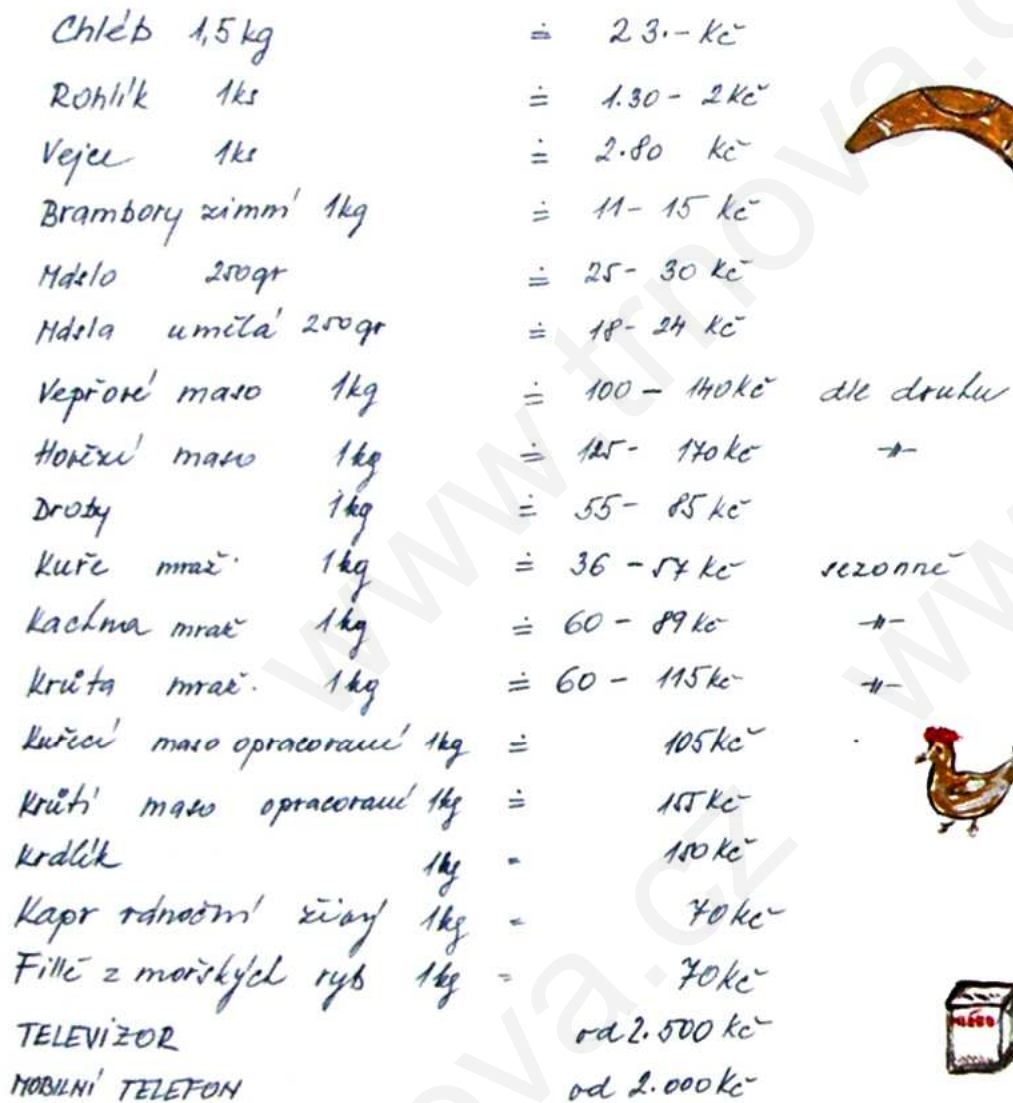 Chléb 1,5 kg ≐ 23.- Kč
Rohlík 1ks ≐ 1.30 - 2 Kč
Vejce 1ks ≐ 2.80 Kč
Brambory zimní 1kg ≐ 11 - 15 Kč
Máslo 250gr ≐ 25 - 30 Kč
Másla umělá 250gr ≐ 18 - 24 Kč
Vepřové maso 1kg ≐ 100 - 140 Kč dle druhu
Hovězí maso 1kg ≐ 125 - 170 Kč -"-
Droby 1kg ≐ 55 - 85 Kč
Kuře mraž. 1kg ≐ 36 - 57 Kč sezonně
Kachna mraž 1kg ≐ 60 - 89 Kč -"-
Krůta mraž. 1kg ≐ 60 - 115 Kč -"-
Kuřecí maso opracované 1kg ≐ 105 Kč
Krůtí maso opracované 1kg ≐ 155 Kč
Králík 1kg = 150 Kč
Kapr vánoční živý 1kg = 70 Kč
Fillé z mořských ryb 1kg = 70 Kč
TELEVIZOR od 2.500 Kč
MOBILNÍ TELEFON od 2.000 Kč
www.trnova.cz